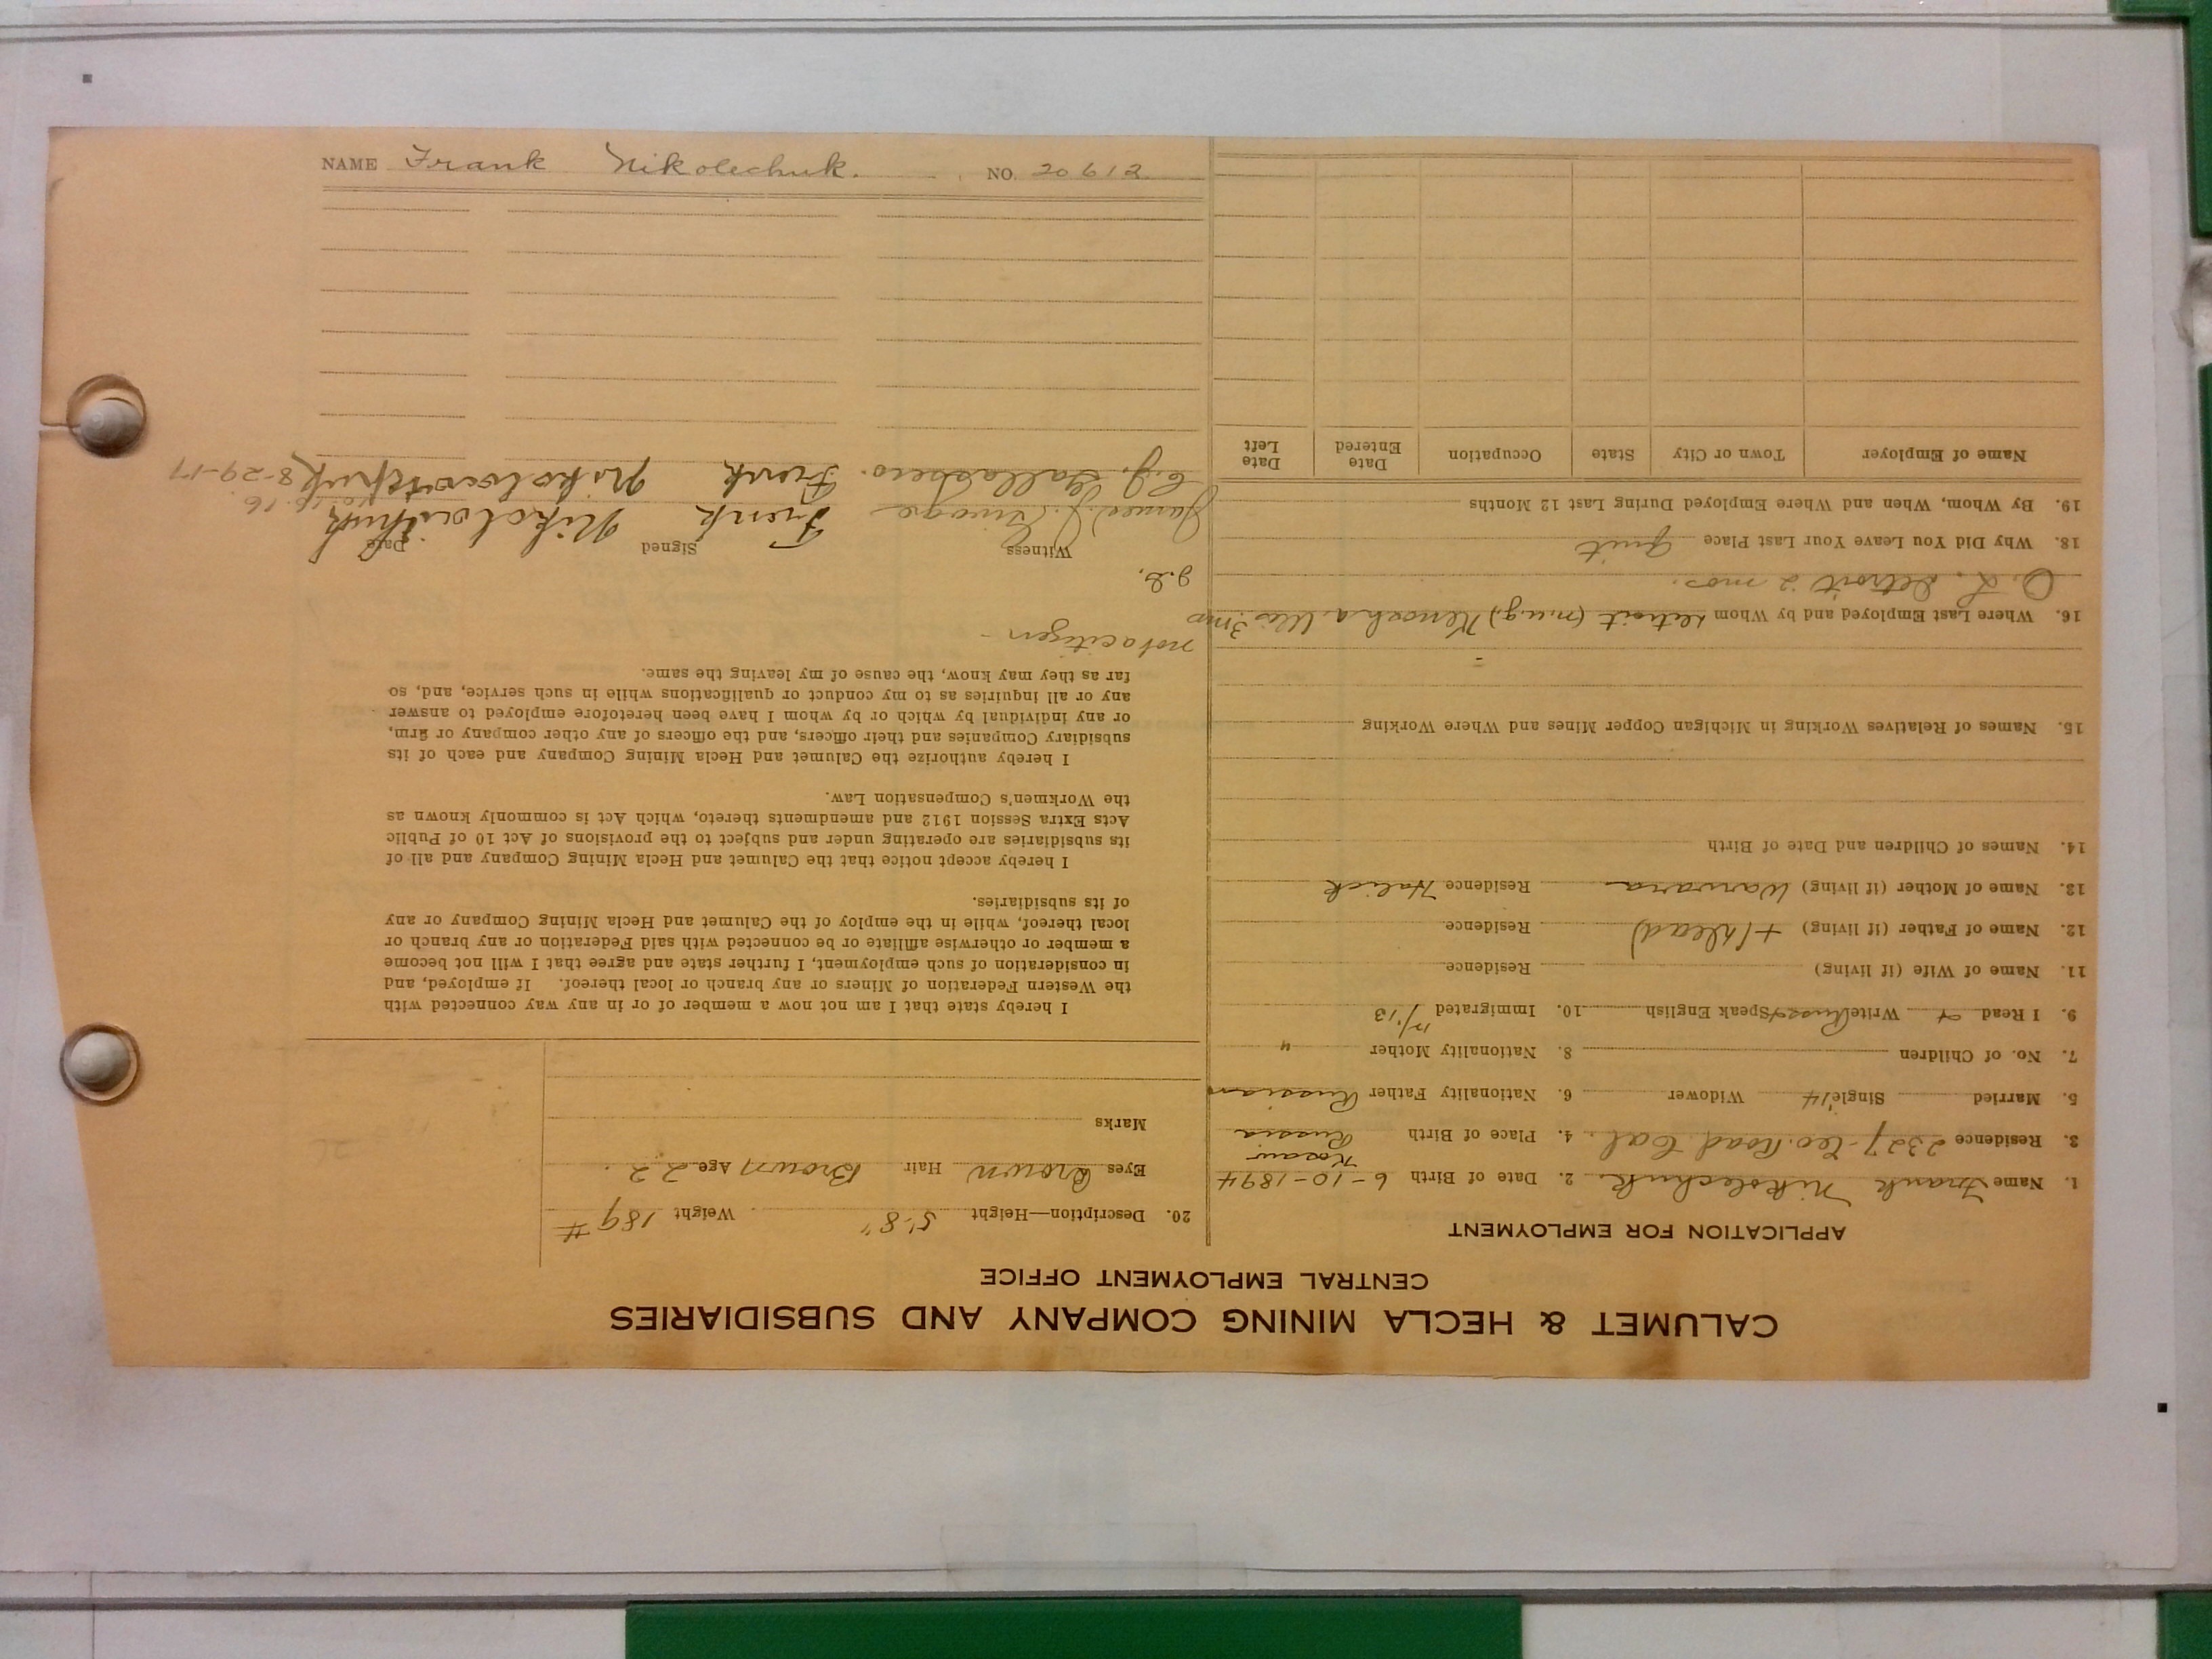 CALUMET & HECLA MINING COMPANY AND SUBSIDIARIES
CENTRAL EMPLOYMENT OFFICE
APPLICATION FOR EMPLOYMENT
1. Name Frank Nikolechuk 2. Date of Birth 6-10-1894
3. Residence 2327 Road Cal. 4. Place of Birth Russia
5. Married Single Widower 6. Nationality Father Russian
7. No. of Children 8. Nationality Mother "
9. I Read Write Speak English 10. Immigrated /'13
11. Name of Wife (if living) Residence
12. Name of Father (if living) + (dead) Residence
13. Name of Mother (if living) Warwara Residence Halick
14. Names of Children and Date of Birth
15. Names of Relatives Working in Michigan Copper Mines and Where Working
16. Where Last Employed and by Whom Detroit (m.u.g.) Kenosha Wis. 3 mo
Detroit 2 mos.
18. Why Did You Leave Your Last Place quit
19. By Whom, When and Where Employed During Last 12 Months
Name of Employer Town or City State Occupation Date Entered Date Left
20. Description—Height 5'8" Weight 189 #
Eyes Brown Hair Brown Age 22.
Marks
I hereby state that I am not now a member of or in any way connected with
the Western Federation of Miners or any branch or local thereof. If employed, and
in consideration of such employment, I further state and agree that I will not become
a member or otherwise affiliate or be connected with said Federation or any branch or
local thereof, while in the employ of the Calumet and Hecla Mining Company or any
of its subsidiaries.
I hereby accept notice that the Calumet and Hecla Mining Company and all of
its subsidiaries are operating under and subject to the provisions of Act 10 of Public
Acts Extra Session 1912 and amendments thereto, which Act is commonly known as
the Workmen's Compensation Law.
I hereby authorize the Calumet and Hecla Mining Company and each of its
subsidiary Companies and their officers, and the officers of any other company or firm,
or any individual by which or by whom I have been heretofore employed to answer
any or all inquiries as to my conduct or qualifications while in such service, and, so
far as they may know, the cause of my leaving the same.
not a citizen -
Witness Signed Date
James J. Frenk
Frenk 8-29-17
NAME Frank Nikolechuk. NO. 20612